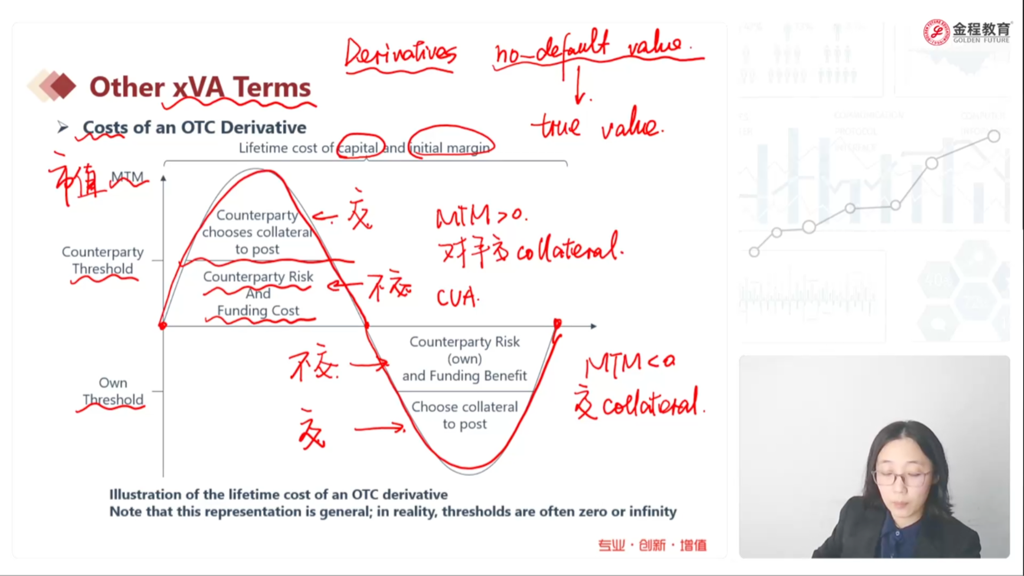 金程教育
GOLDEN FUTURE
Derivatives no-default value.
true value.
Other xVA Terms
Costs of an OTC Derivative
Lifetime cost of capital and initial margin
市值
MTM
Counterparty
chooses collateral
to post
交
MTM>0.
对手方collateral.
CVA.
Counterparty
Threshold
Counterparty Risk
And
Funding Cost
不交
Counterparty Risk
(own)
and Funding Benefit
不交.
MTM<0
交collateral.
Own
Threshold
Choose collateral
to post
交
Illustration of the lifetime cost of an OTC derivative
Note that this representation is general; in reality, thresholds are often zero or infinity
专业·创新·增值